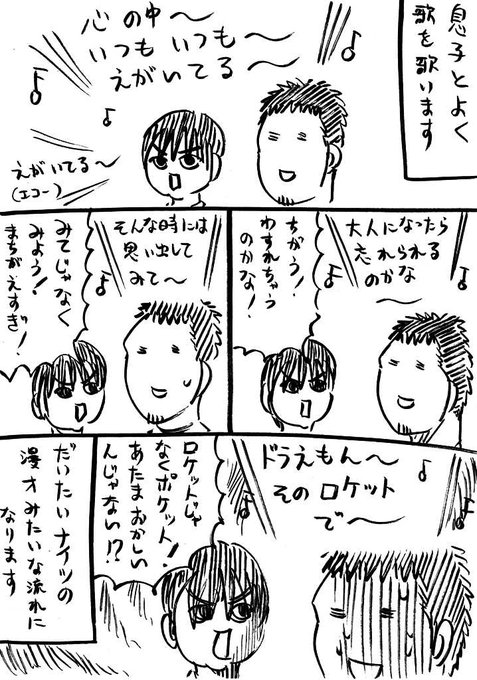 息子とよく
歌を歌います
心の中〜
いつも いつも〜
えがいてる〜
えがいてる〜
(エコー)
大人になったら
忘れられる
のかな
〜
ちがう!
わすれちゃう
のかな!
そんな時には
思い出して
みて〜
みてじゃなく
みよう!
まちがえすぎ!
ドラえもん〜
そのロケット
で〜
ロケットじゃ
なくポケット!
あたまおかしい
んじゃない!?
だいたいナイツの
漫才みたいな流れに
なります